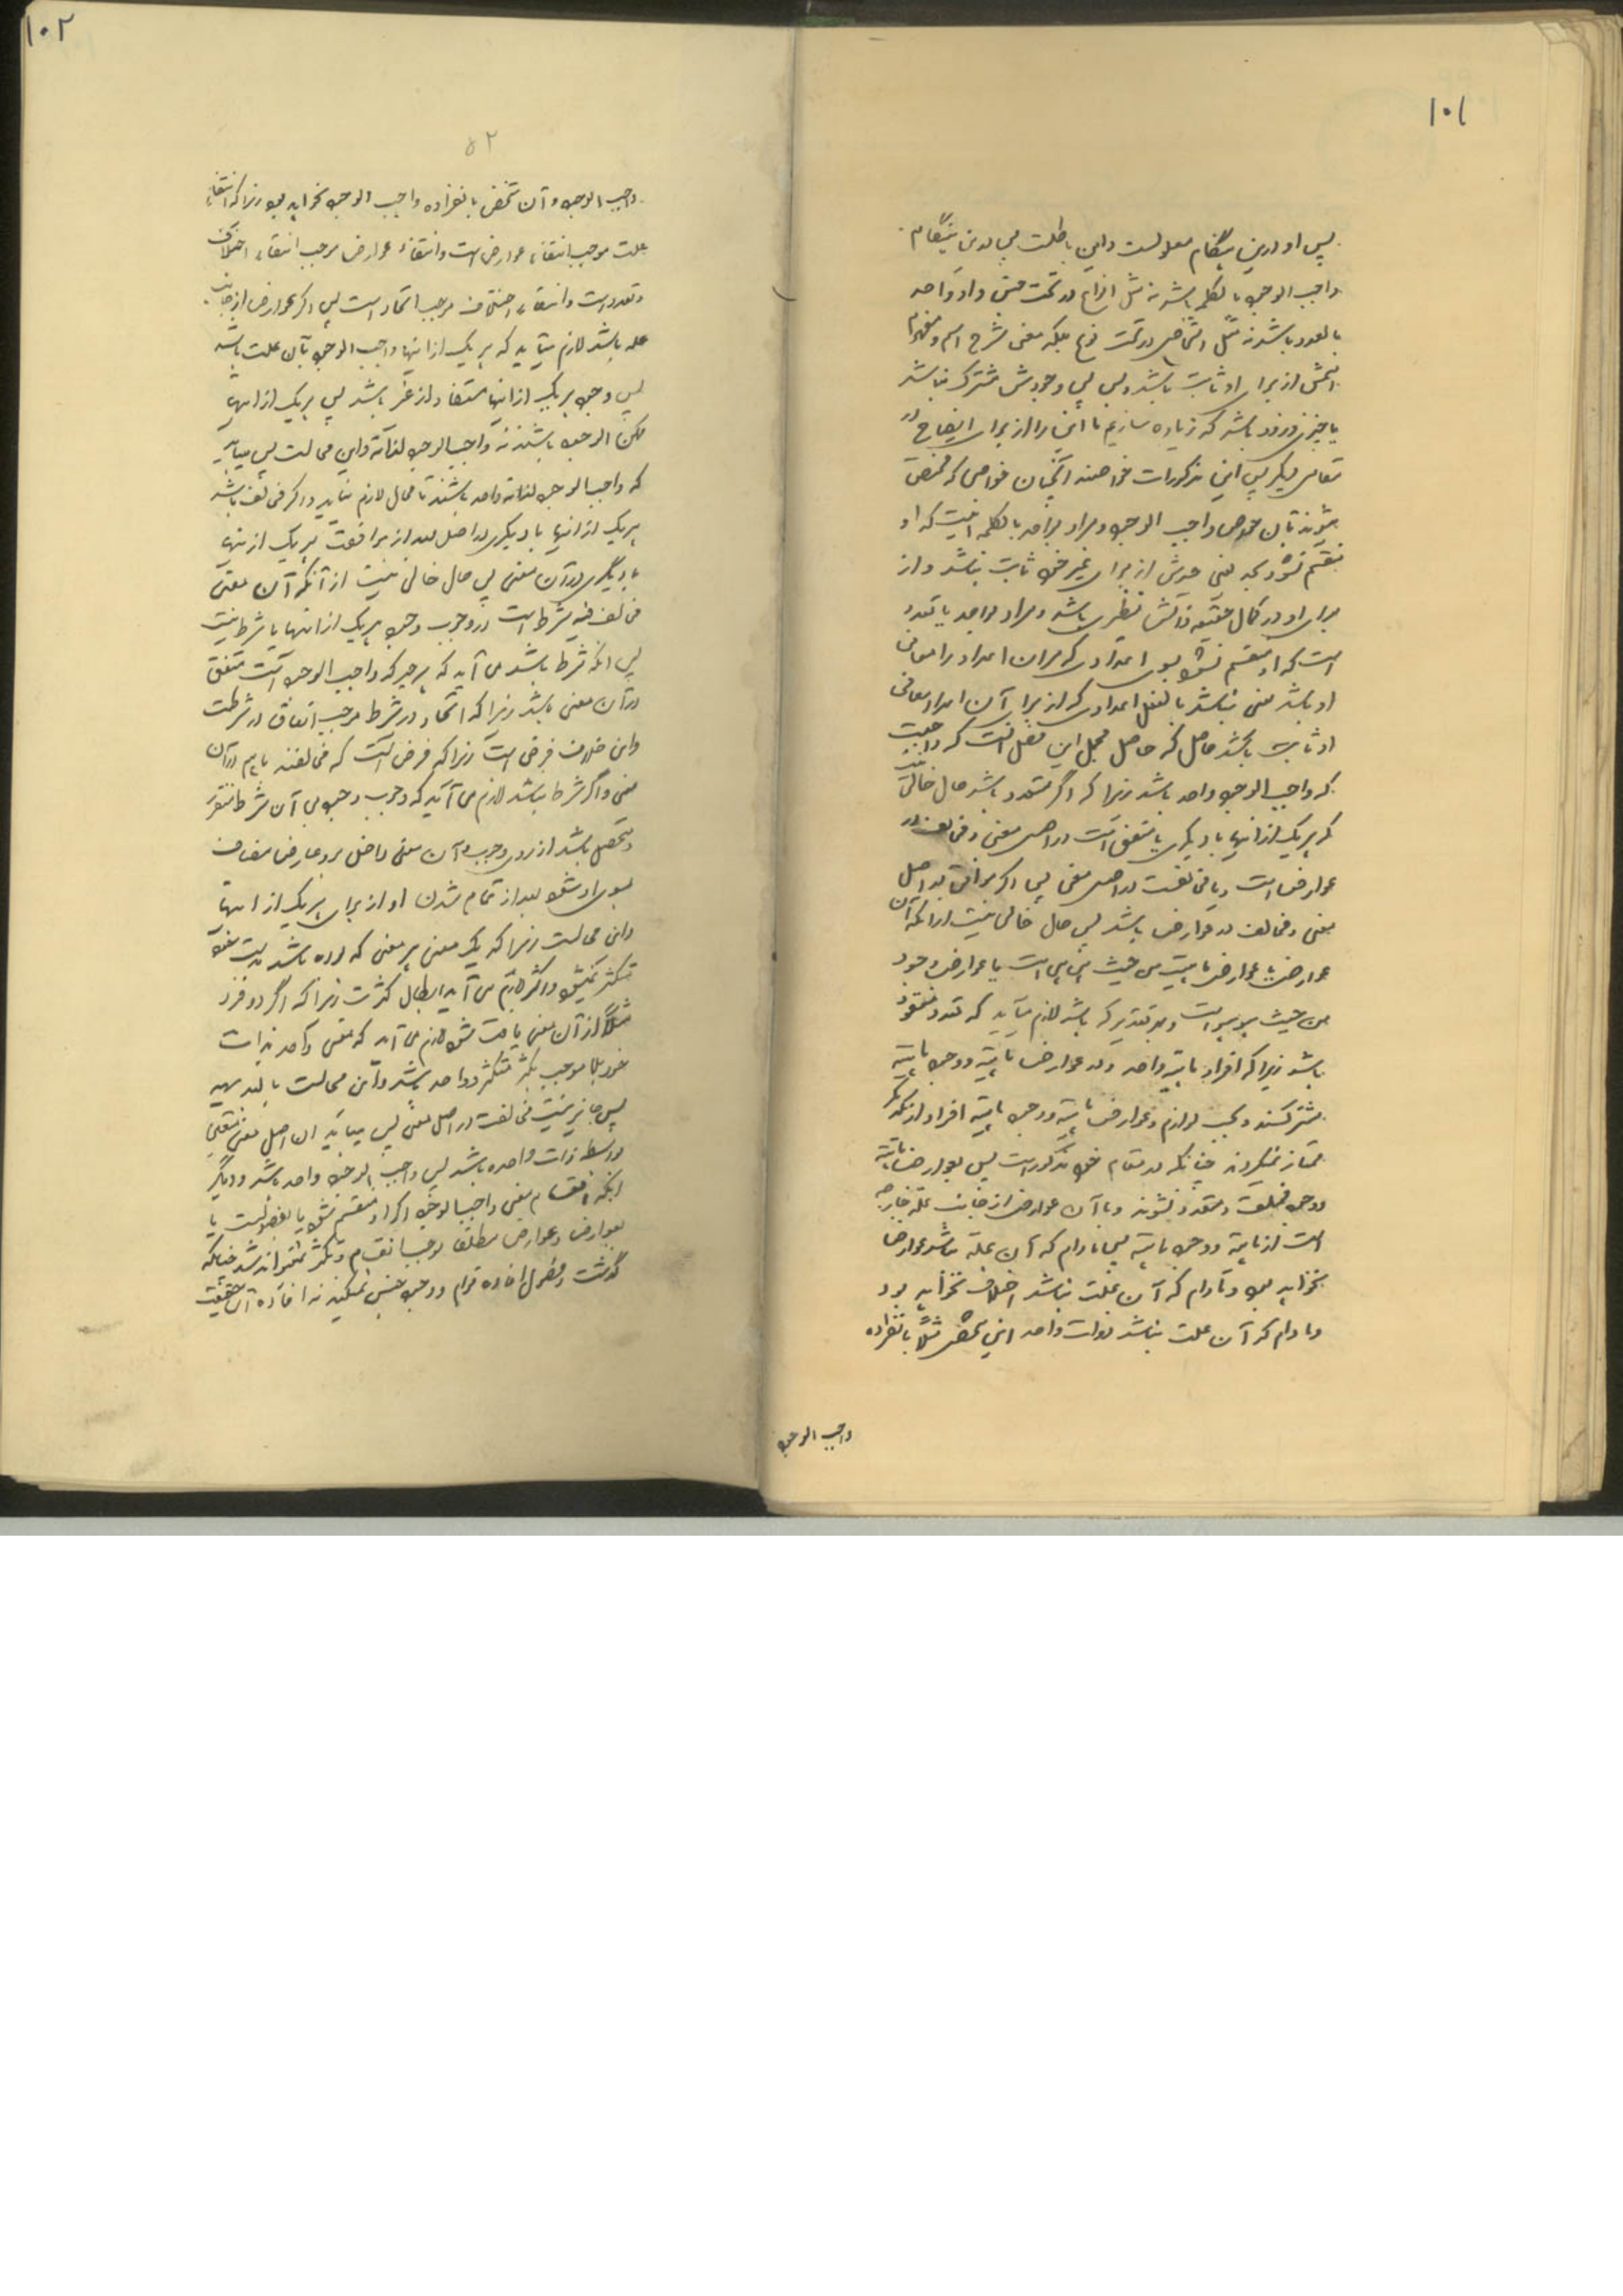 ۱۰۱
پس او درین هنگام معلولست و این باطلست پس درین هنگام
واجب الوجود بالکلمه باشد نه مثل انواع در تحت جنس و او واحد
بالعدد باشد نه مثل اشخاص در تحت نوع بلکه معنی شرح اسم و مفهوم
اسمش از برای او ثابت باشد و بس پس وجودش مشترک نباشد
با چیزی و زود باشد که زیاده سازیم ما این را از برای ایضاح در
مقامی دیگر پس این مذکورات خواصند آنچنان خواصی که مختص
میشوند بآن خواص واجب الوجود و مراد بواحد بالکلمه اینست که او
منقسم نشود بحد یعنی حدش از برای غیر خود ثابت نباشد و از
برای او در کمال حقیقه ذاتش نظری باشد و مراد بواحد بالعدد
است که او منقسم نشود بسوی اعدادی که مران اعداد را معانی
او باشد یعنی نباشد بالفعل اعدادی که از برای آن اعداد معانی
او ثابت باشد حاصل که حاصل مجمل این مفصل انست که واجبست
که واجب الوجود واحد باشد زیرا که اگر متعدد باشد حال خالی نیست
که هر یک از انها با دیگری یا متفق است در اصل معنی و مخالف در
عوارض است و یا مخالفست در اصل معنی پس اگر موافق در اصل
معنی و مخالف در عوارض باشد پس حال خالی نیست از آنکه آن
عوارض یا عوارض ماهیت من حیث هی هی است یا عوارض وجود
من حیث هو هو است و بهر تقدیر که باشد لازم میآید که تعدد مفقود
باشد زیرا که افراد ماهیته واحد در عوارض ماهیته و وجود ماهیته
مشترکند و بحسب لوازم و عوارض ماهیته و وجود ماهیته افراد از یکدیگر
ممتاز نمیگردند چنانکه در مقام خود مذکور است پس بعوارض ماهیته
و وجود مختلف و متعدد نشوند و یا آن عوارض از جانب علة خارجه
است از ماهیة و وجود ماهیته پس مادام که آن علة نباشد عوارض
نخواهد بود و مادام که آن علت نباشد اختلاف نخواهد بود
و مادام که آن علت نباشد ذوات واحد این شخص مثلا بانفراده
واجب الوجود
۱۰۲
۵۲
واجب الوجود و آن شخص بانفراده واجب الوجود نخواهد بود زیرا که انتفاء
علت موجب انتفاء عوارض است و انتفاء عوارض موجب انتفاء اختلاف
و تعدد است و انتفاء اختلاف موجب اتحاد است پس اگر عوارض از جانب
علة باشد لازم میآید که هر یک از اینها واجب الوجود بآن علت باشد
پس وجود هر یک از انها مستفاد از غیر باشد پس هر یک از انها
ممکن الوجود باشند نه واجب الوجود لذاته و این محالست پس میباید
که واجب الوجود لذاته واحد باشند تا محال لازم نیاید و اگر مخالف باشد
هر یک از انها با دیگری در اصل بعد از موافقت هر یک از انها
با دیگری در آن معنی پس حال خالی نیست از آنکه آن معنی
مخالف فیه شرط است در وجوب وجود هر یک از انها یا شرط نیست
پس اگر شرط باشد می آید که هر چیز که واجب الوجود است متفق
در آن معنی باشد زیرا که اتحاد در شرط موجب اتفاق در شرطست
و این خلاف فرض است زیرا که فرض آنست که مخالفند با هم در آن
معنی و اگر شرط نباشد لازم می آید که وجوب وجود بی آن شرط متقرر
و متحصل باشد از روی وجوب و آن معنی داخل بر و عارض مضاف
بسوی او شود بعد از تمام شدن او از برای هر یک از انها
و این محالست زیرا که یک معنی هر معنی که بوده باشد بذات خود
متکثر نمیشود و اگر لازم می آید ابطال کثرت زیرا که اگر دو فرد
مثلا از آن معنی یافت شود لازم می آید که معنی واحد بذات
خود بلا موجب تکثر متکثر و واحد باشد و این محالست بالبدیهه
پس جایز نیست مخالفت در اصل معنی پس میباید ان اصل معنی متعین
بواسطه ذات واحده باشد پس واجب الوجود واحد باشد و دیگر
اینکه انقسام معنی واجب الوجود اگر او منقسم شود یا بفصولست یا
بعوارض و عوارض مطلقا موجب انقسام و تکثر نمیتواند شد چنانکه
گذشت و فصول افاده قوام و وجود جنس نمیکنند نه افاده آن حقیقت